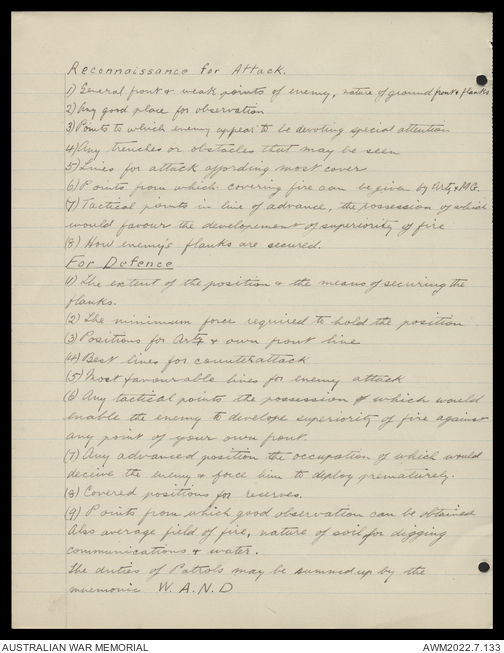 Reconnaissance for Attack.
1) General front & weak points of enemy, nature of ground front & flanks
2) Any good place for observation
3) Points to which enemy appear to be devoting special attention
4) Any trenches or obstacles that may be seen
5) Lines for attack affording most cover
6) Points from which covering fire can be given by Arty & MG.
(7) Tactical points in line of advance, the possession of which
would favour the developement of superiority of fire
(8) How enemy's flanks are secured.
For Defence
(1) The extent of the position & the means of securing the
flanks.
(2) The minimum force required to hold the position
(3) Positions for Arty & own front line
(4) Best lines for counterattack
(5) Most favourable lines for enemy attack
(6) Any tactical points the possession of which would
enable the enemy to develope superiority of fire against
any point of your own front.
(7) Any advanced position the occupation of which would
deceive the enemy & force him to deploy prematurely.
(8) Covered positions for reserves.
(9) Points from which good observation can be obtained
Also average field of fire, nature of soil for digging
communications & water.
The duties of Patrols may be summed up by the
mnemonic W.A.N.D
AUSTRALIAN WAR MEMORIAL
AWM2022.7.133